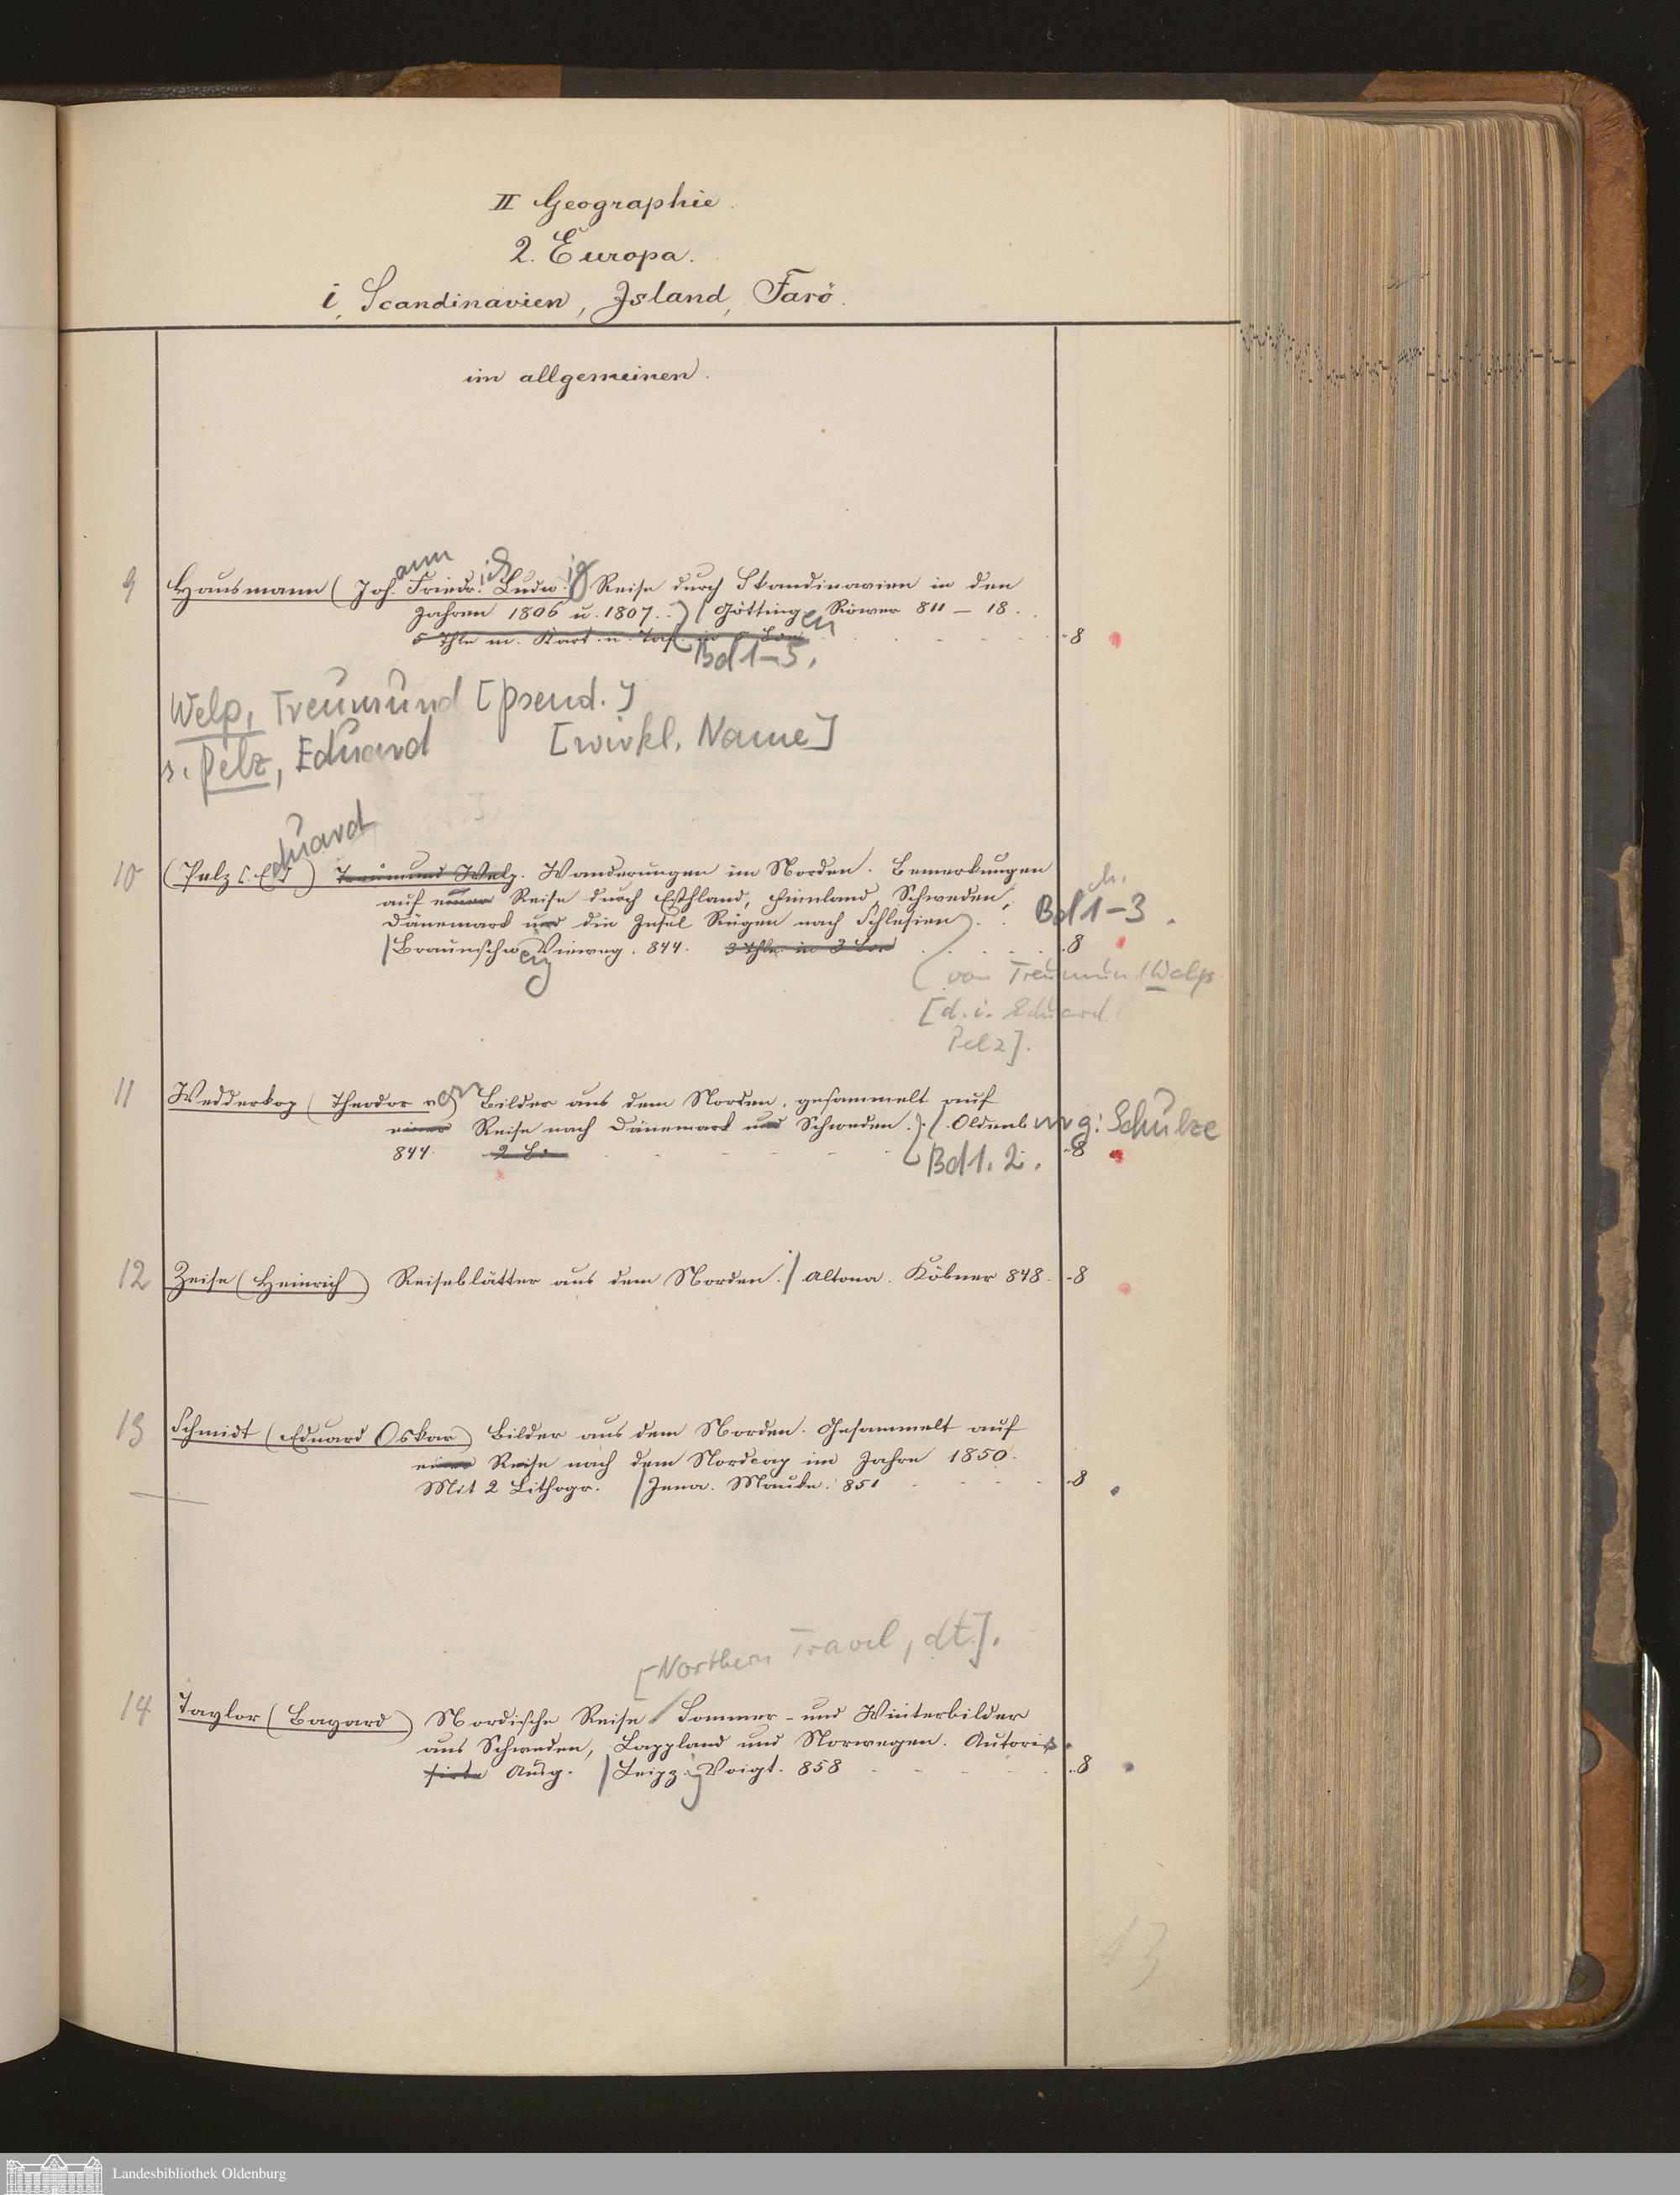 II Geographie.
2. Europa.
i, Scandinavien, Island, Farö.
im allgemeinen.
9 Hausmann (Joh.ann Friedr.ich Ludw.ig) Reise durch Skandinavien in den
Jahren 1806 u. 1807. / Götting.en Röwer 811 – 18.
5 Thle m. Kart. u. Taf. in 5 Bon - 8
Bd 1–5.
Welp, Treumund [pseud.]
s. Pelz, Eduard [wirkl. Name]
10 (Pelz [. Eduard) Treumund Welp. Wanderungen im Norden. Bemerkungen
auf einer Reise durch Esthland, Finnland, Schweden,
Dänemark und die Insel Rügen nach Schlesien. Bd 1–3.
/ Braunschweig Vieweg. 844. 3 Thle in 3 Bon - 8
(von Treumun/Welp
[d. i. Eduard
Pelz].
11 Wedderkop (Theodor von) Bilder aus dem Norden, gesammelt auf
einer Reise nach Dänemark und Schweden. / Oldenburg: Schulze
844. 2 B. - 8
Bd 1. 2.
12 Zeise (Heinrich) Reiseblätter aus dem Norden. / Altona. Köbner 848. - 8
13 Schmidt (Eduard Oskar) Bilder aus dem Norden. Gesammelt auf
einer Reise nach dem Nordcap im Jahre 1850.
Mit 2 Lithogr. / Jena. Mauke. 851 - 8
[Northern Travel, dt.].
14 Taylor (Bayard) Nordische Reise / Sommer- und Winterbilder
aus Schweden, Lappland und Norwegen. Autoris.
sirte Ausg. / Leipzig Voigt. 858 - 8
13
Landesbibliothek Oldenburg